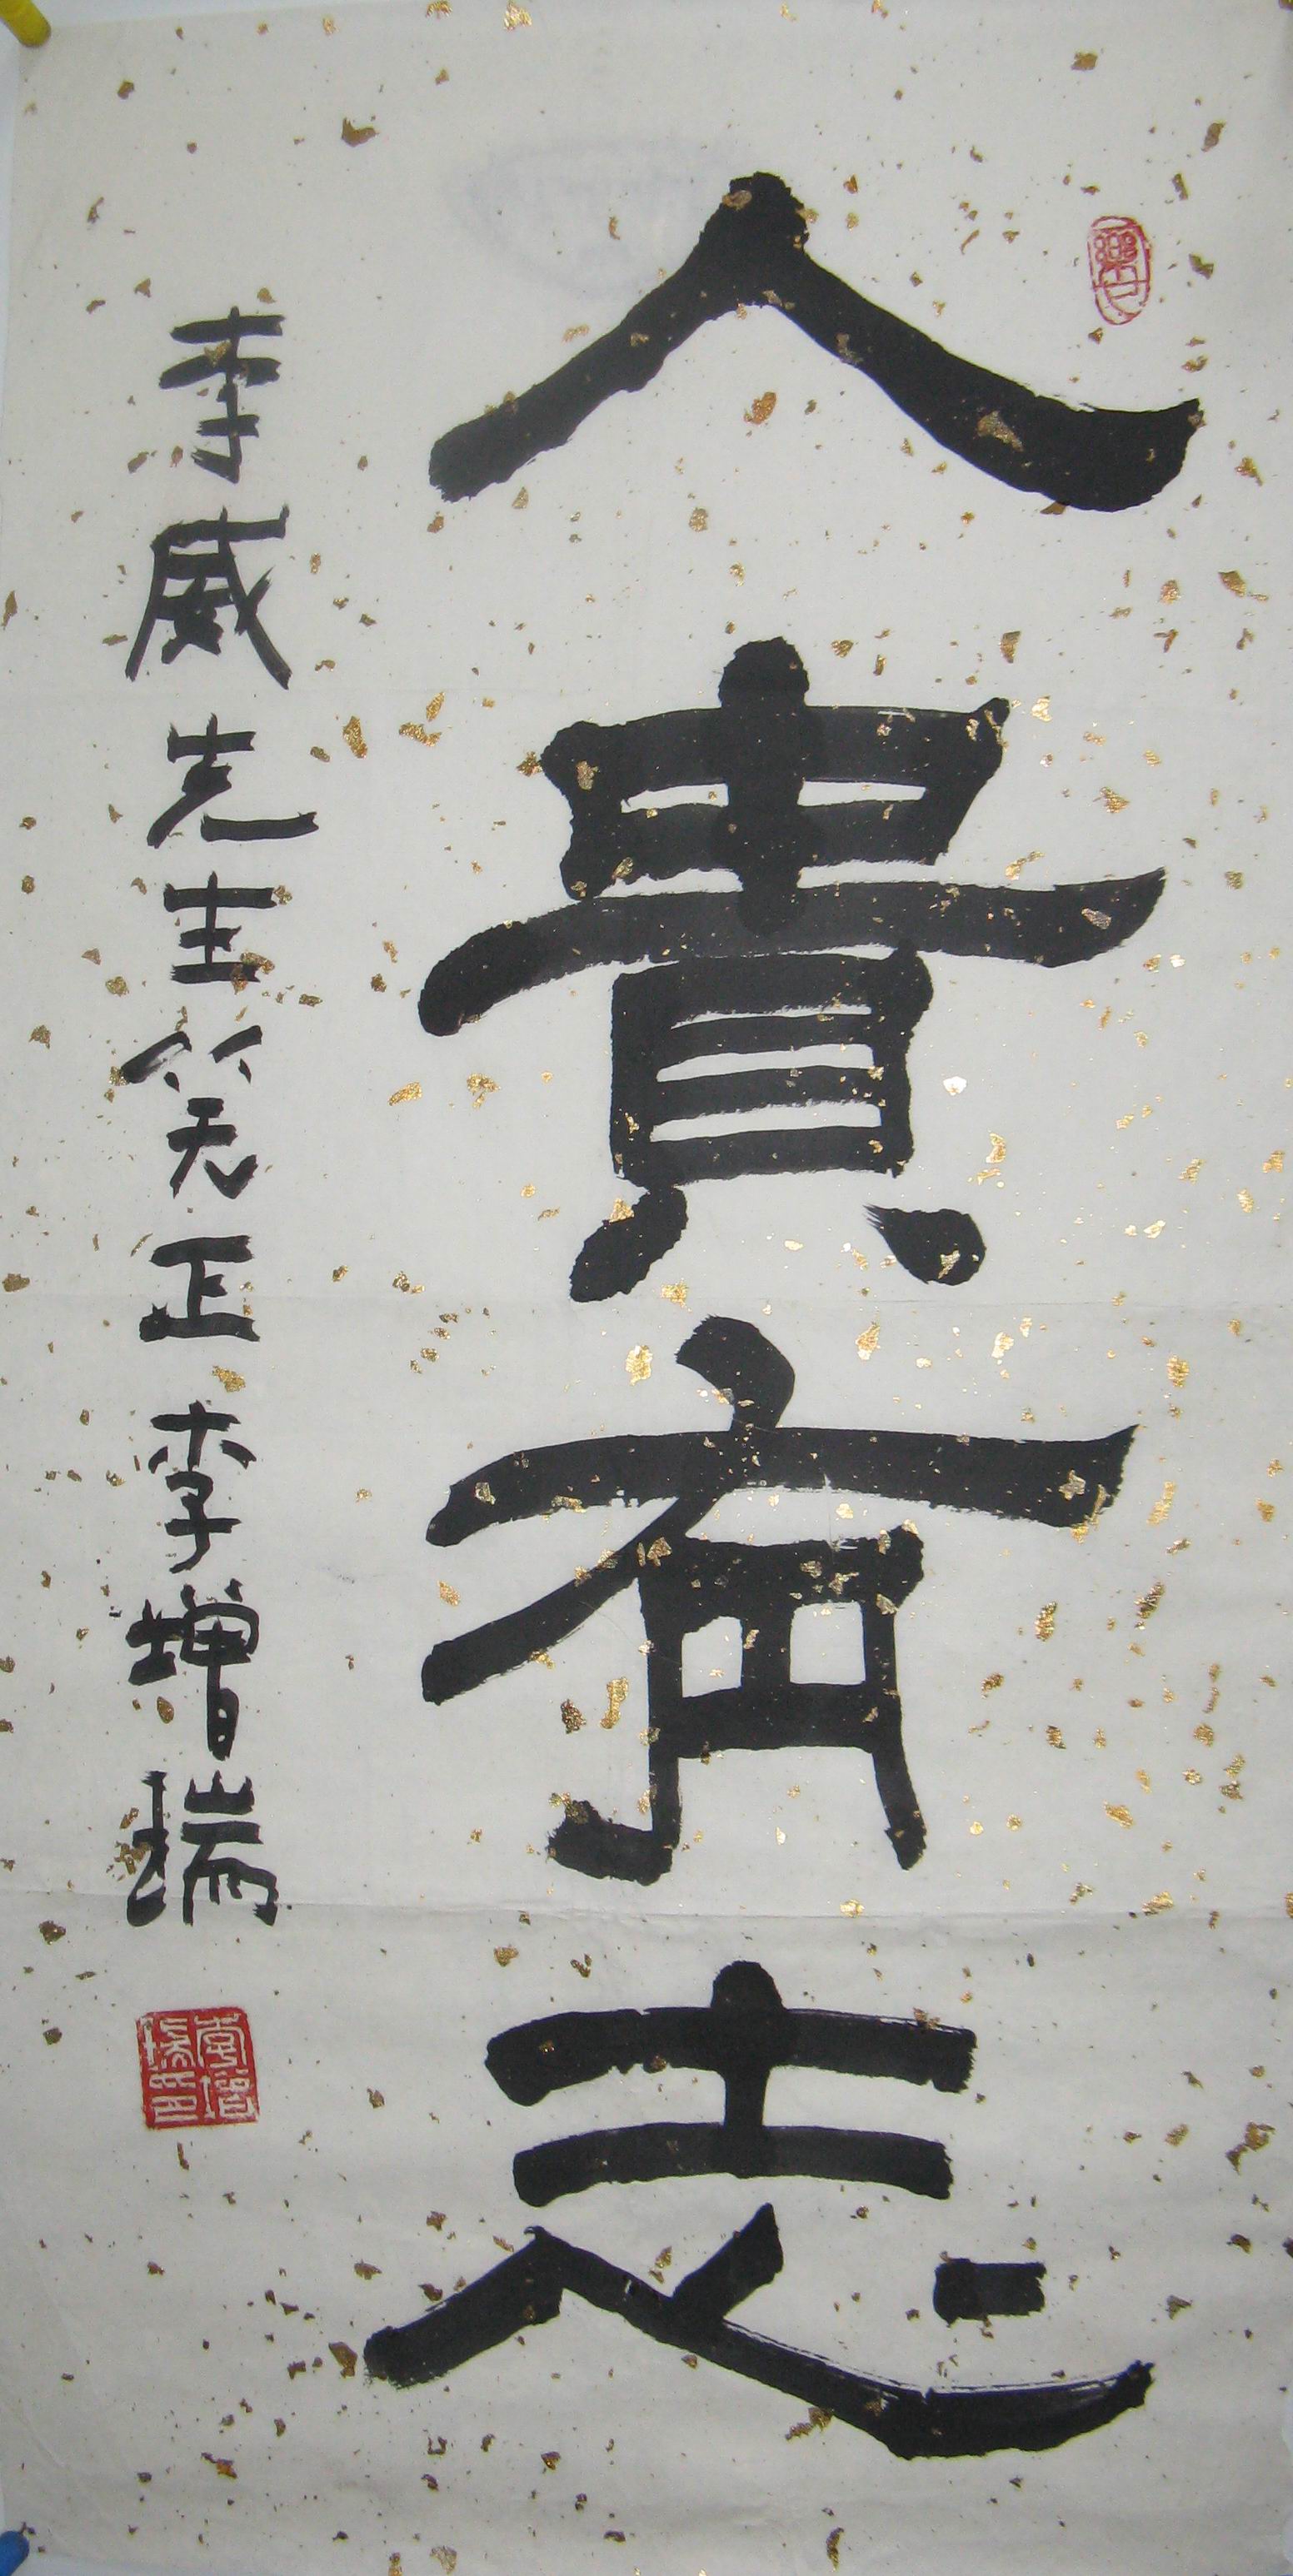 人貴有志
李威先生笑正李增瑞